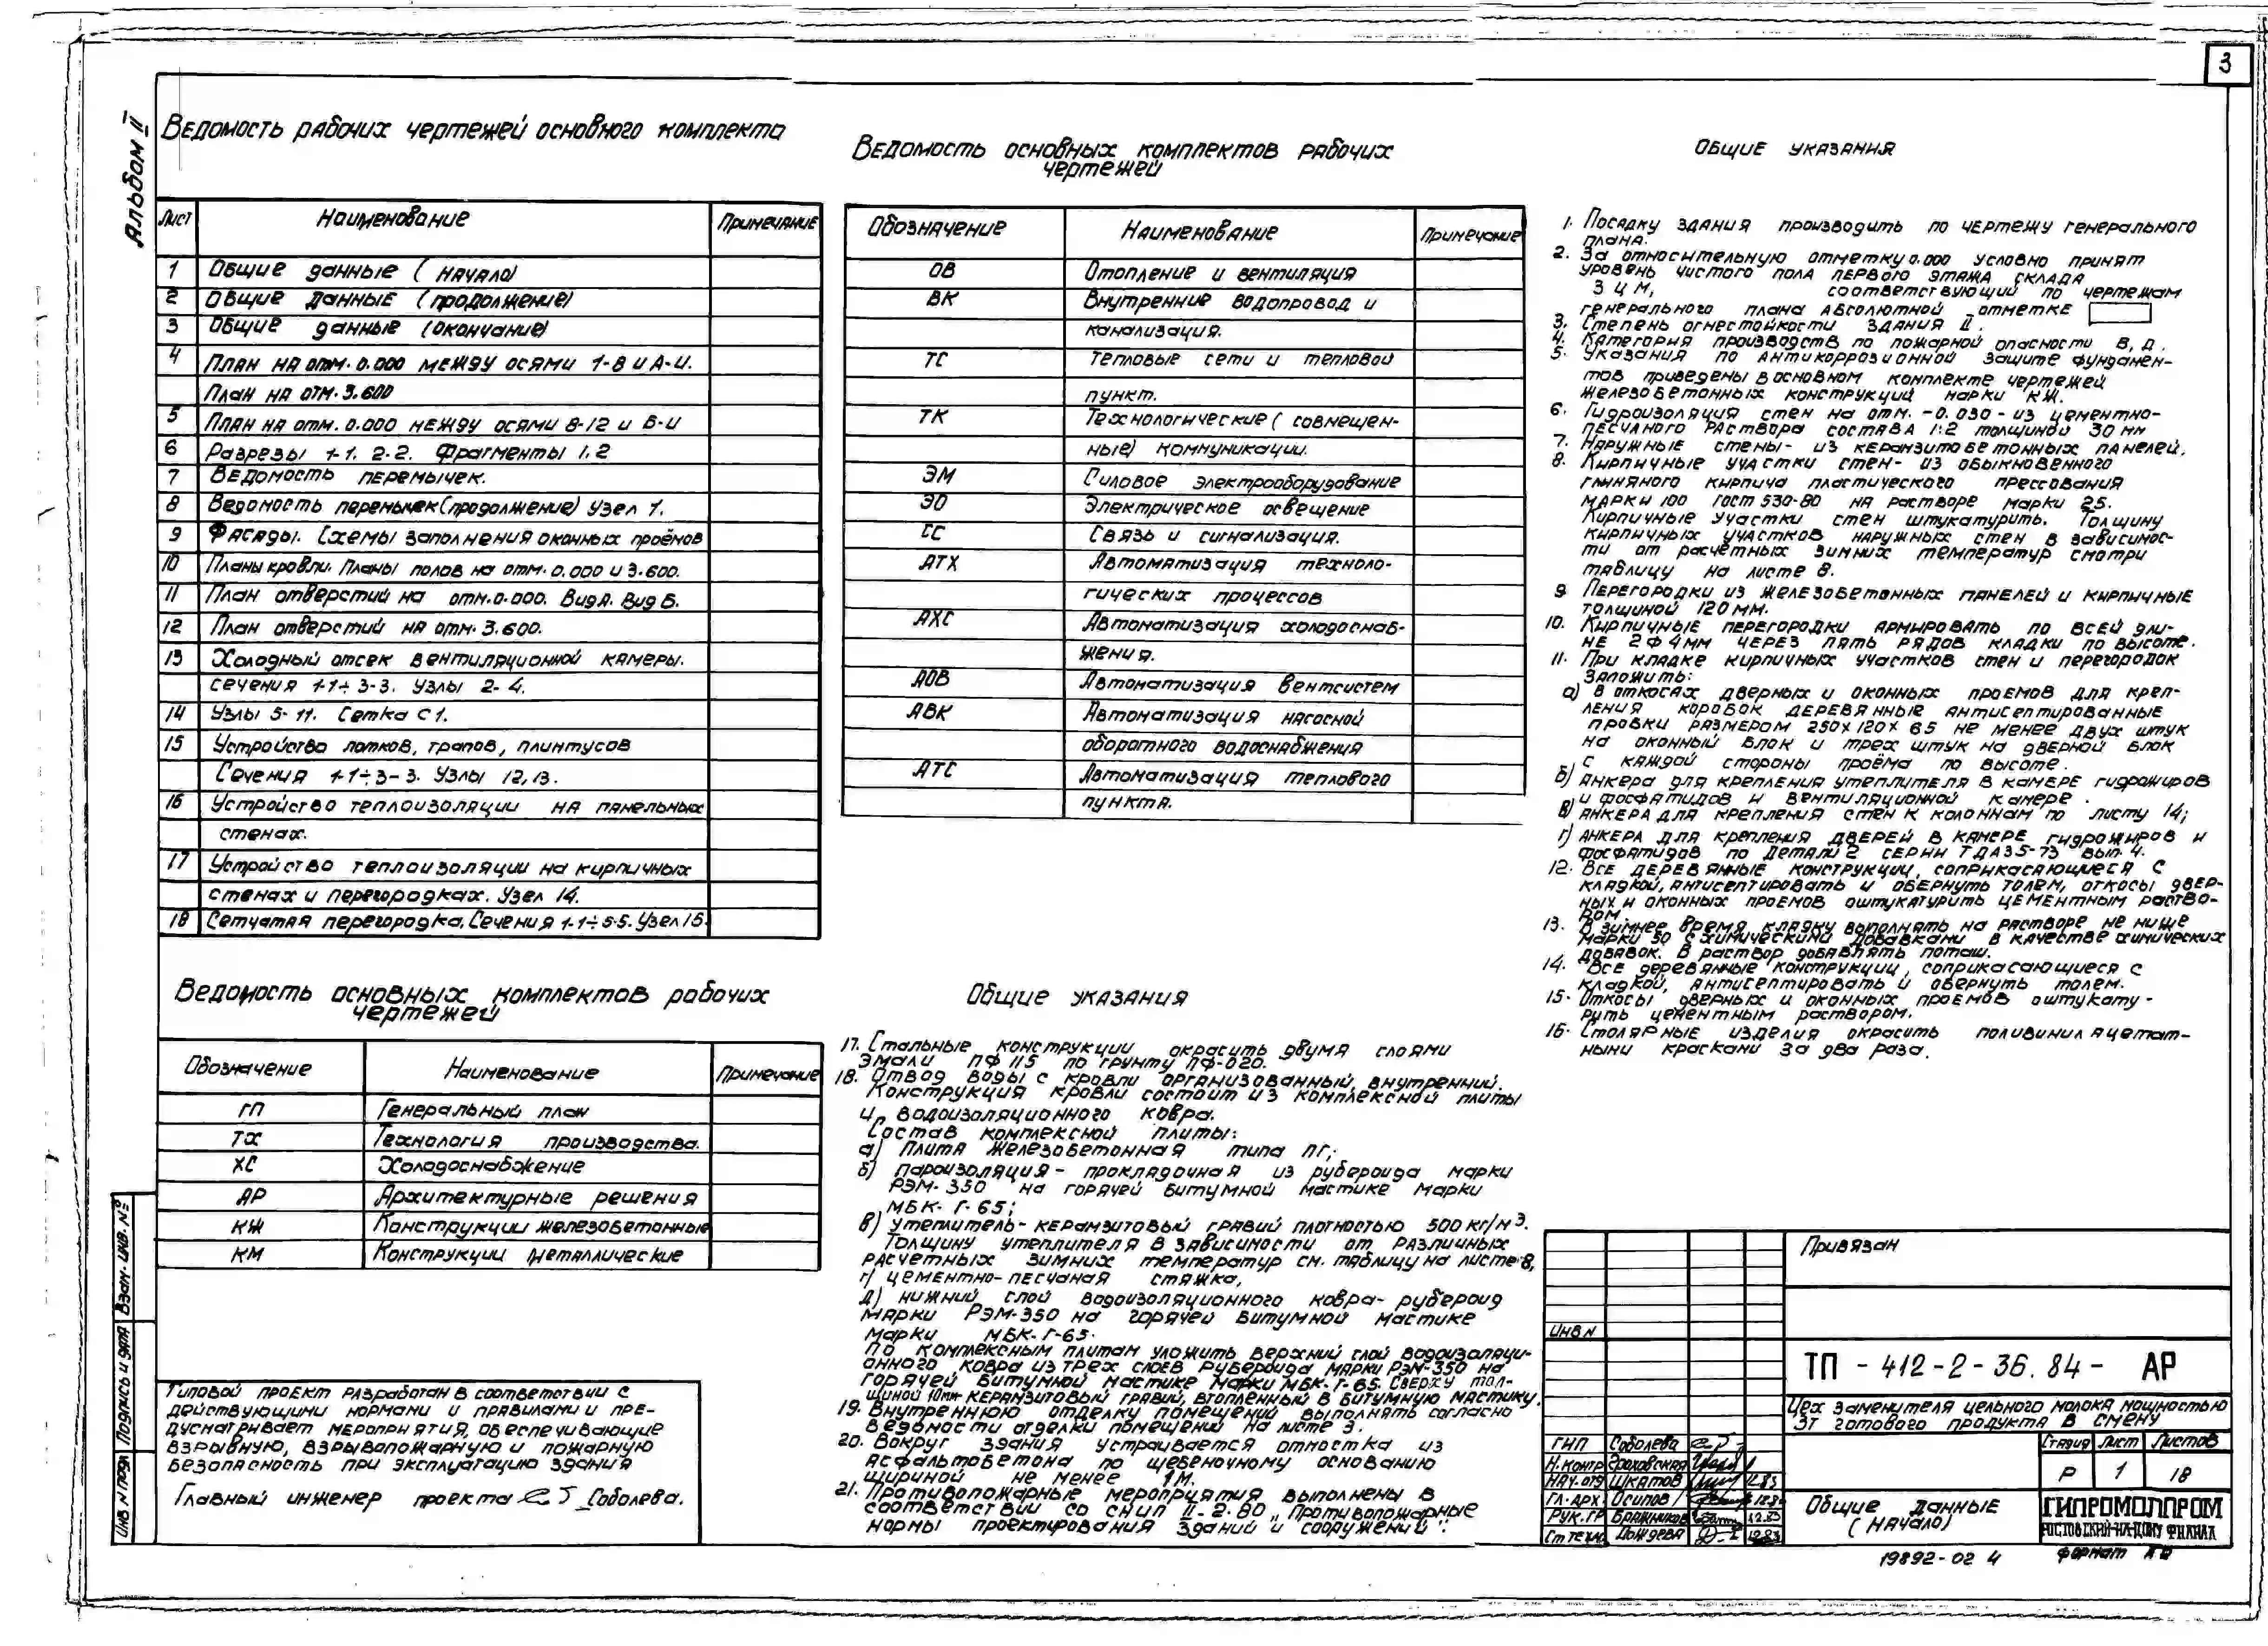 3
Альбом II
Ведомость рабочих чертежей основного комплекта
Лист Наименование Примечание
1 Общие данные (начало)
2 Общие данные (продолжение)
3 Общие данные (окончание)
4 План на отм. 0.000 между осями 1-8 и А-И.
План на отм. 3.600
5 План на отм. 0.000 между осями 8-12 и Б-И
6 Разрезы 1-1, 2-2. Фрагменты 1,2
7 Ведомость перемычек.
8 Ведомость перемычек (продолжение) Узел 1.
9 Фасады. Схемы заполнения оконных проёмов
10 Планы кровли. Планы полов на отм. 0.000 и 3.600.
11 План отверстий на отм. 0.000. Вид А. Вид Б.
12 План отверстий на отм. 3.600.
13 Холодный отсек вентиляционной камеры.
сечения 1-1÷3-3. Узлы 2-4.
14 Узлы 5-11. Сетка С1.
15 Устройство лотков, трапов, плинтусов
Сечения 1-1÷3-3. Узлы 12,13.
16 Устройство теплоизоляции на панельных
стенах.
17 Устройство теплоизоляции на кирпичных
стенах и перегородках. Узел 14.
18 Сетчатая перегородка. Сечения 1-1÷5-5. Узел 15.
Ведомость основных комплектов рабочих
чертежей
Обозначение Наименование Примечание
ГП Генеральный план
ТХ Технология производства.
ХС Холодоснабжение
АР Архитектурные решения
КЖ Конструкции железобетонные
КМ Конструкции металлические
Типовой проект разработан в соответствии с
действующими нормами и правилами и пре-
дусматривает мероприятия, обеспечивающие
взрывную, взрывопожарную и пожарную
безопасность при эксплуатацию здания
Главный инженер проекта Соболева.
Взам. инв. №
Подпись и дата
Инв N подл
Ведомость основных комплектов рабочих
чертежей
Обозначение Наименование Примечание
ОВ Отопление и вентиляция
ВК Внутренние водопровод и
канализация.
ТС Тепловые сети и тепловой
пункт.
ТК Технологические (совмещен-
ные) коммуникации.
ЭМ Силовое электрооборудование
ЭО Электрическое освещение
СС Связь и сигнализация.
АТХ Автоматизация техноло-
гических процессов
АХС Автоматизация холодоснаб-
жения.
АОВ Автоматизация вентсистем
АВК Автоматизация насосной
оборотного водоснабжения
АТС Автоматизация теплового
пункта.
Общие указания
17. Стальные конструкции окрасить двумя слоями
эмали ПФ 115 по грунту ПФ-020.
18. Отвод воды с кровли организованный, внутренний.
Конструкция кровли состоит из комплексной плиты
и водоизоляционного ковра.
Состав комплексной плиты:
а) Плита железобетонная типа ПГ;
б) пароизоляция - прокладочная из рубероида марки
РЭМ-350 на горячей битумной мастике марки
МБК-Г-65;
в) утеплитель - керамзитовый гравий плотностью 500 кг/м3.
Толщину утеплителя в зависимости от различных
расчетных зимних температур см. таблицу на листе 8,
г) цементно-песчаная стяжка,
д) нижний слой водоизоляционного ковра - рубероид
марки РЭМ-350 на горячей битумной мастике
марки МБК-Г-65.
По комплексным плитам уложить верхний слой водоизоляци-
онного ковра из трех слоев рубероида марки РЭМ-350 на
горячей битумной мастике марки МБК-Г-65. Сверху тол-
щиной 10мм керамзитовый гравий, втопленный в битумную мастику.
19. Внутреннюю отделку помещений выполнять согласно
ведомости отделки помещений на листе 3.
20. Вокруг здания устраивается отмостка из
асфальтобетона по щебеночному основанию
шириной не менее 1М.
21. Противопожарные мероприятия выполнены в
соответствии со СНИП II-2-80 „Противопожарные
нормы проектирования зданий и сооружений".
Общие указания
1. Посадку здания производить по чертежу генерального
плана.
2. За относительную отметку 0.000 условно принят
уровень чистого пола первого этажа склада
ЗЦМ, соответствующий по чертежам
генерального плана абсолютной отметке
3. Степень огнестойкости здания II.
4. Категория производств по пожарной опасности В, Д.
5. Указания по антикоррозионной защите фундамен-
тов приведены в основном комплекте чертежей
железобетонных конструкций марки КЖ.
6. Гидроизоляция стен на отм. -0.030 - из цементно-
песчаного раствора состава 1:2 толщиной 30 мм
7. Наружные стены - из керамзитобетонных панелей.
8. Кирпичные участки стен - из обыкновенного
глиняного кирпича пластического прессования
марки 100 ГОСТ 530-80 на растворе марки 25.
Кирпичные участки стен штукатурить. Толщину
кирпичных участков наружных стен в зависимос-
ти от расчётных зимних температур смотри
таблицу на листе 8.
9. Перегородки из железобетонных панелей и кирпичные
толщиной 120мм.
10. Кирпичные перегородки армировать по всей дли-
не 2ф4мм через пять рядов кладки по высоте.
11. При кладке кирпичных участков стен и перегородок
заложить:
а) в откосах дверных и оконных проемов для креп-
ления коробок деревянные антисептированные
пробки размером 250х120х65 не менее двух штук
на оконный блок и трех штук на дверной блок
с каждой стороны проёма по высоте.
б) анкера для крепления утеплителя в камере гидрожиров
и фосфатидов и вентиляционной камере.
в) анкера для крепления стен к колоннам по листу 14;
г) анкера для крепления дверей в камере гидрожиров и
фосфатидов по детали 2 серии ТДА35-73 вып. 4.
12. Все деревянные конструкции, соприкасающиеся с
кладкой, антисептировать и обернуть толем, откосы двер-
ных и оконных проемов оштукатурить цементным раство-
ром.
13. В зимнее время кладку выполнять на растворе не ниже
марки 50 с химическими добавками в качестве химических
добавок. В раствор добавлять поташ.
14. Все деревянные конструкции, соприкасающиеся с
кладкой, антисептировать и обернуть толем.
15. Откосы дверных и оконных проемов оштукату-
рить цементным раствором.
16. Столярные изделия окрасить поливинилацетат-
ными красками за два раза.
Привязан
Инв N
ТП - 412-2-36.84- АР
Цех заменителя цельного молока мощностью
3т готового продукта в смену
ГИП Соболева
Н.контр
Нач.отд Шкатов 12.83
Гл.арх. Осипов
Рук.гр Бражников 12.83
Ст техн Дождева 12.83
Стадия Лист Листов
Р 1 18
Общие данные
(начало)
ГИПРОМОЛПРОМ
РОСТОВСКИЙ-НА-ДОНУ ФИЛИАЛ
19892-02 4
формат